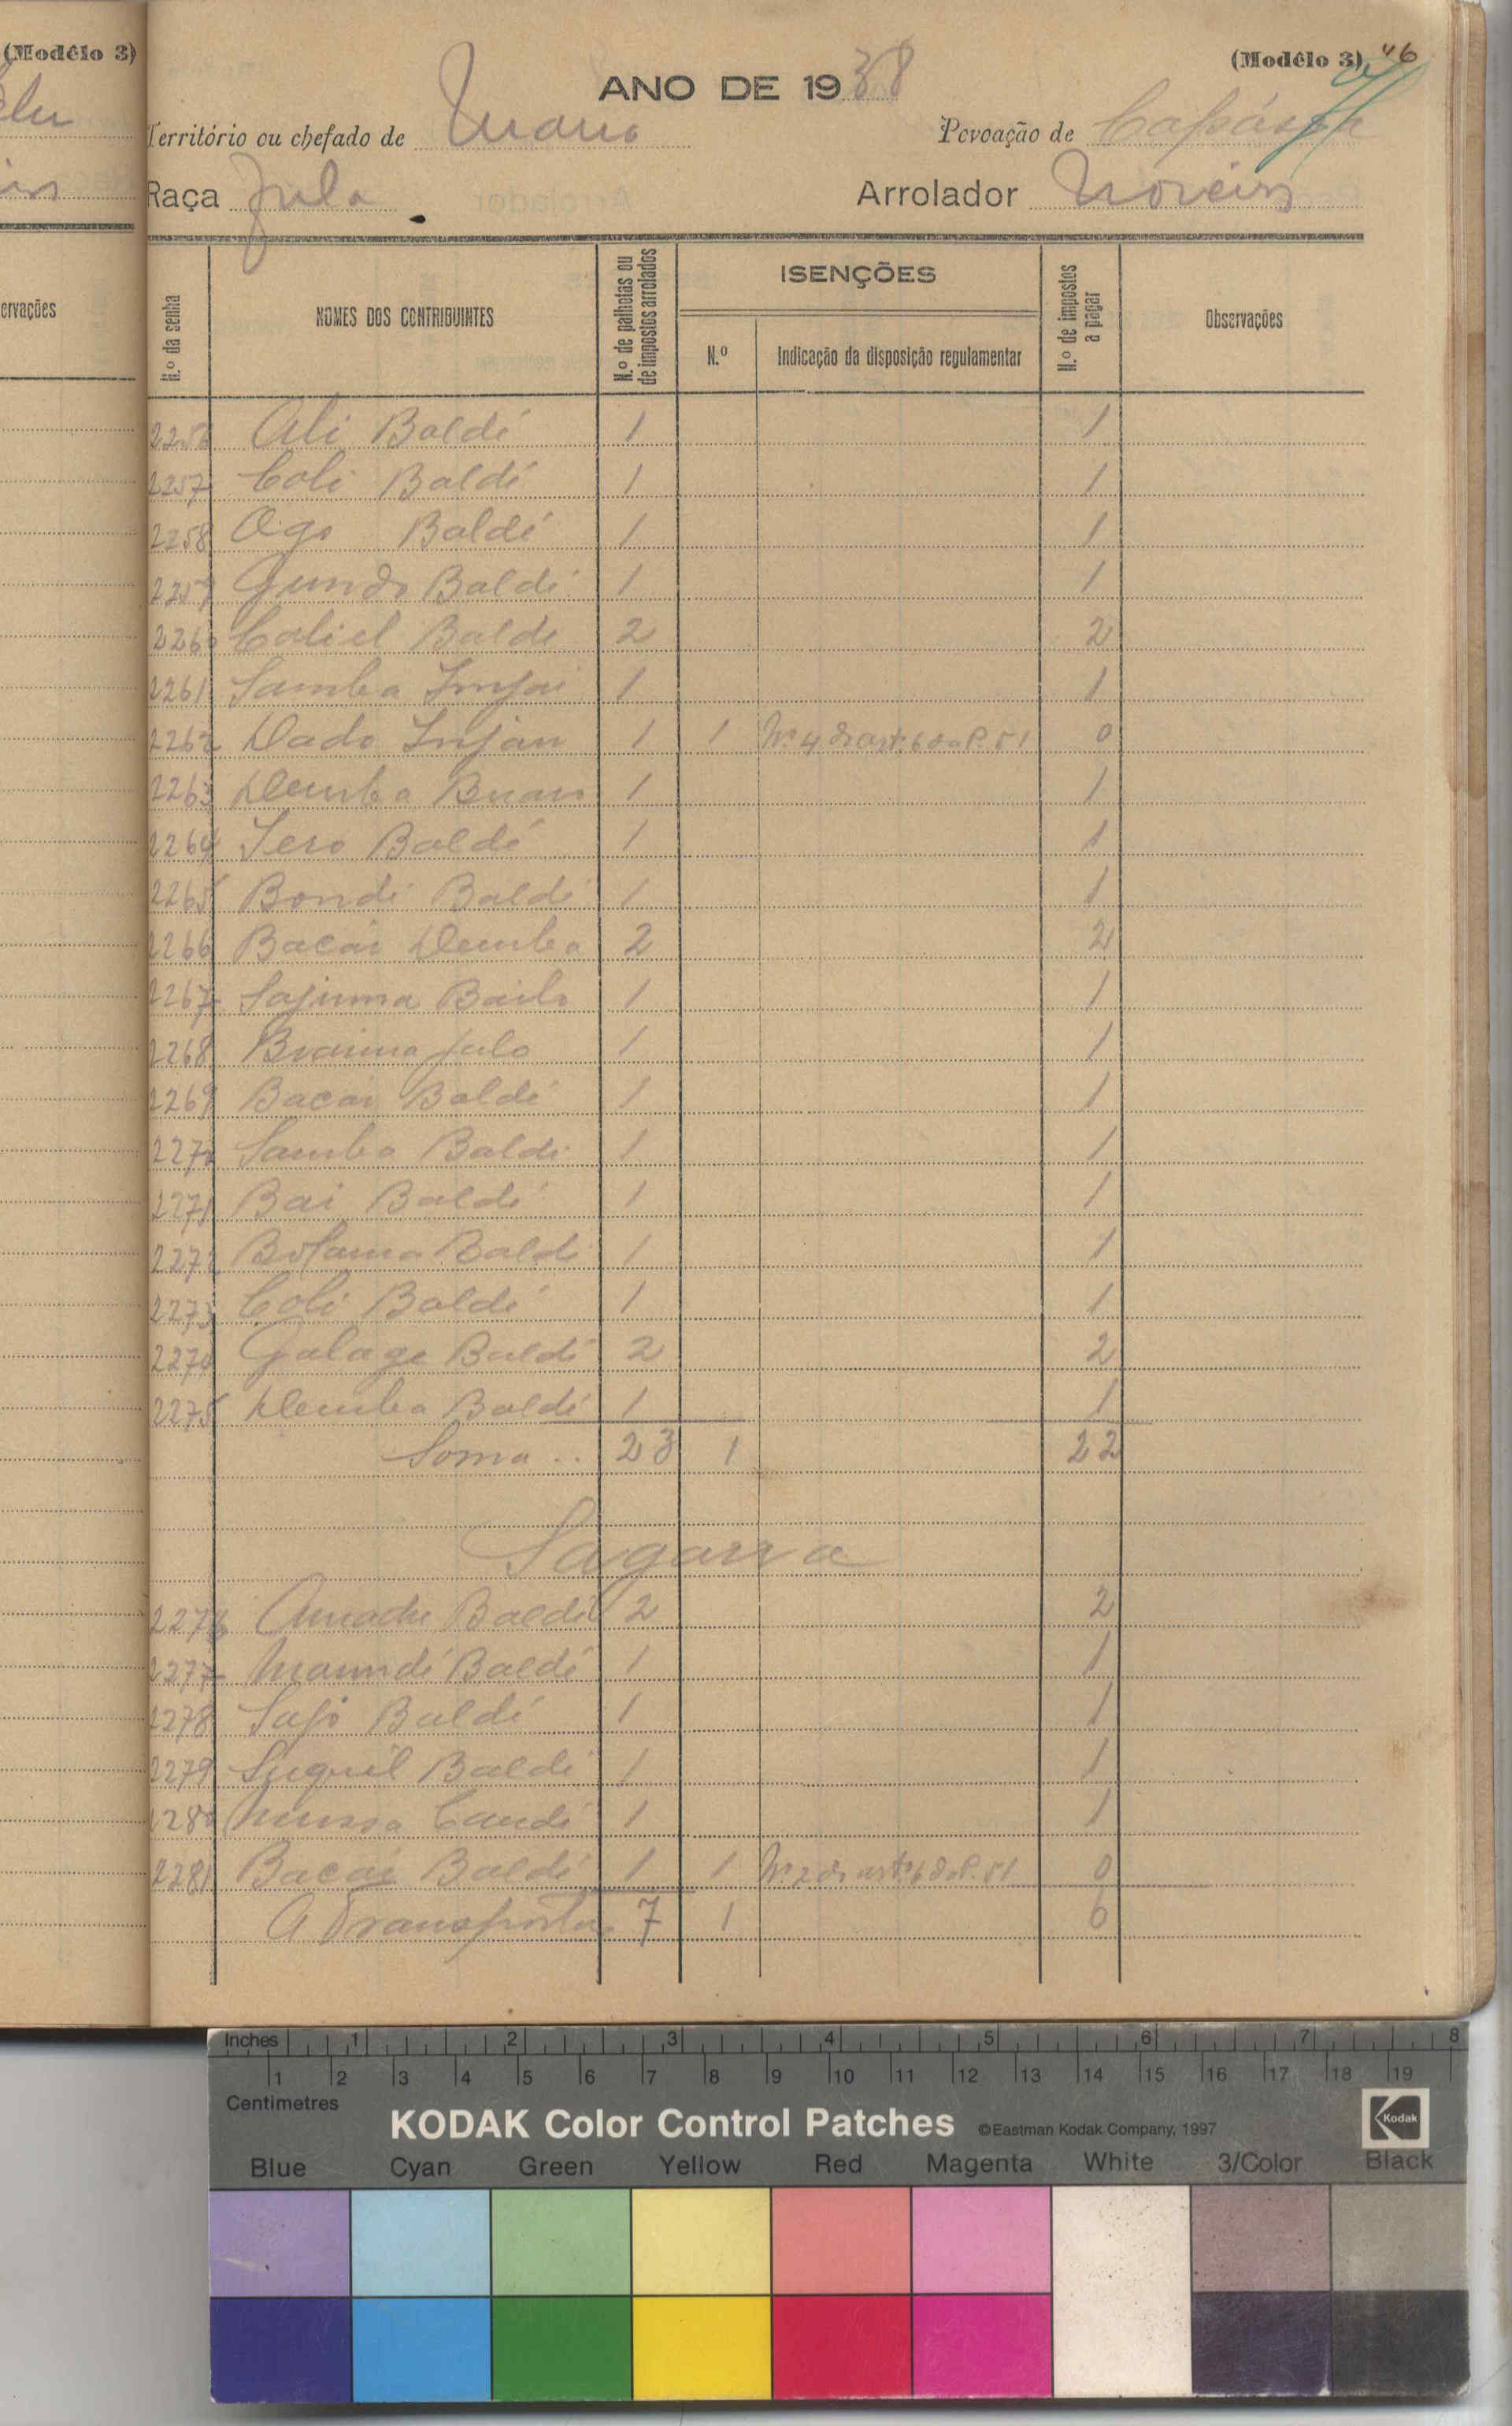 (Modêlo 3)
ervações
(Modêlo 3) 46
ANO DE 1938
Território ou chefado de Povoação de
Raça Fula Arrolador
N.º da senha
NOMES DOS CONTRIBUINTES
N.º de palhotas ou de impostos arrolados
ISENÇÕES
N.º
Indicação da disposição regulamentar
N.º de impostos a pagar
Observações
2256 Ali Baldé 1 1
2257 Coli Baldé 1 1
2258 Ogo Baldé 1 1
2259 Gundo Baldé 1 1
2260 Caliel Balde 2 2
2261 Samba 1 1
2262 Dado Injai 1 1 Nº 4 do artº 6 da P. 51 0
2263 Demba 1 1
2264 Iero Baldé 1 1
2265 Bondi Baldé 1 1
2266 Bacar Demba 2 2
2267 Sajuma Bailo 1 1
2268 Braima Jalo 1 1
2269 Bacar Baldé 1 1
2270 Samba Balde 1 1
2271 Bai Baldé 1 1
2272 Bolama Baldé 1 1
2273 Coli Baldé 1 1
2274 Galage Baldé 2 2
2275 Demba Baldé 1 1
Soma .. 23 1 22
Sagarra
2276 Amadu Baldé 2 2
2277 Maundé Baldé 1 1
2278 Sajo Baldé 1 1
2279 Suquel Baldé 1 1
2280 Mussa Candé 1 1
2281 Bacar Baldé 1 1 Nº 2 do artº 6 da P. 51 0
A Transportar 7 1 6
Inches 1 2 3 4 5 6 7 8
1 2 3 4 5 6 7 8 9 10 11 12 13 14 15 16 17 18 19
Centimetres
KODAK Color Control Patches ©Eastman Kodak Company, 1997 Kodak
Blue Cyan Green Yellow Red Magenta White 3/Color Black